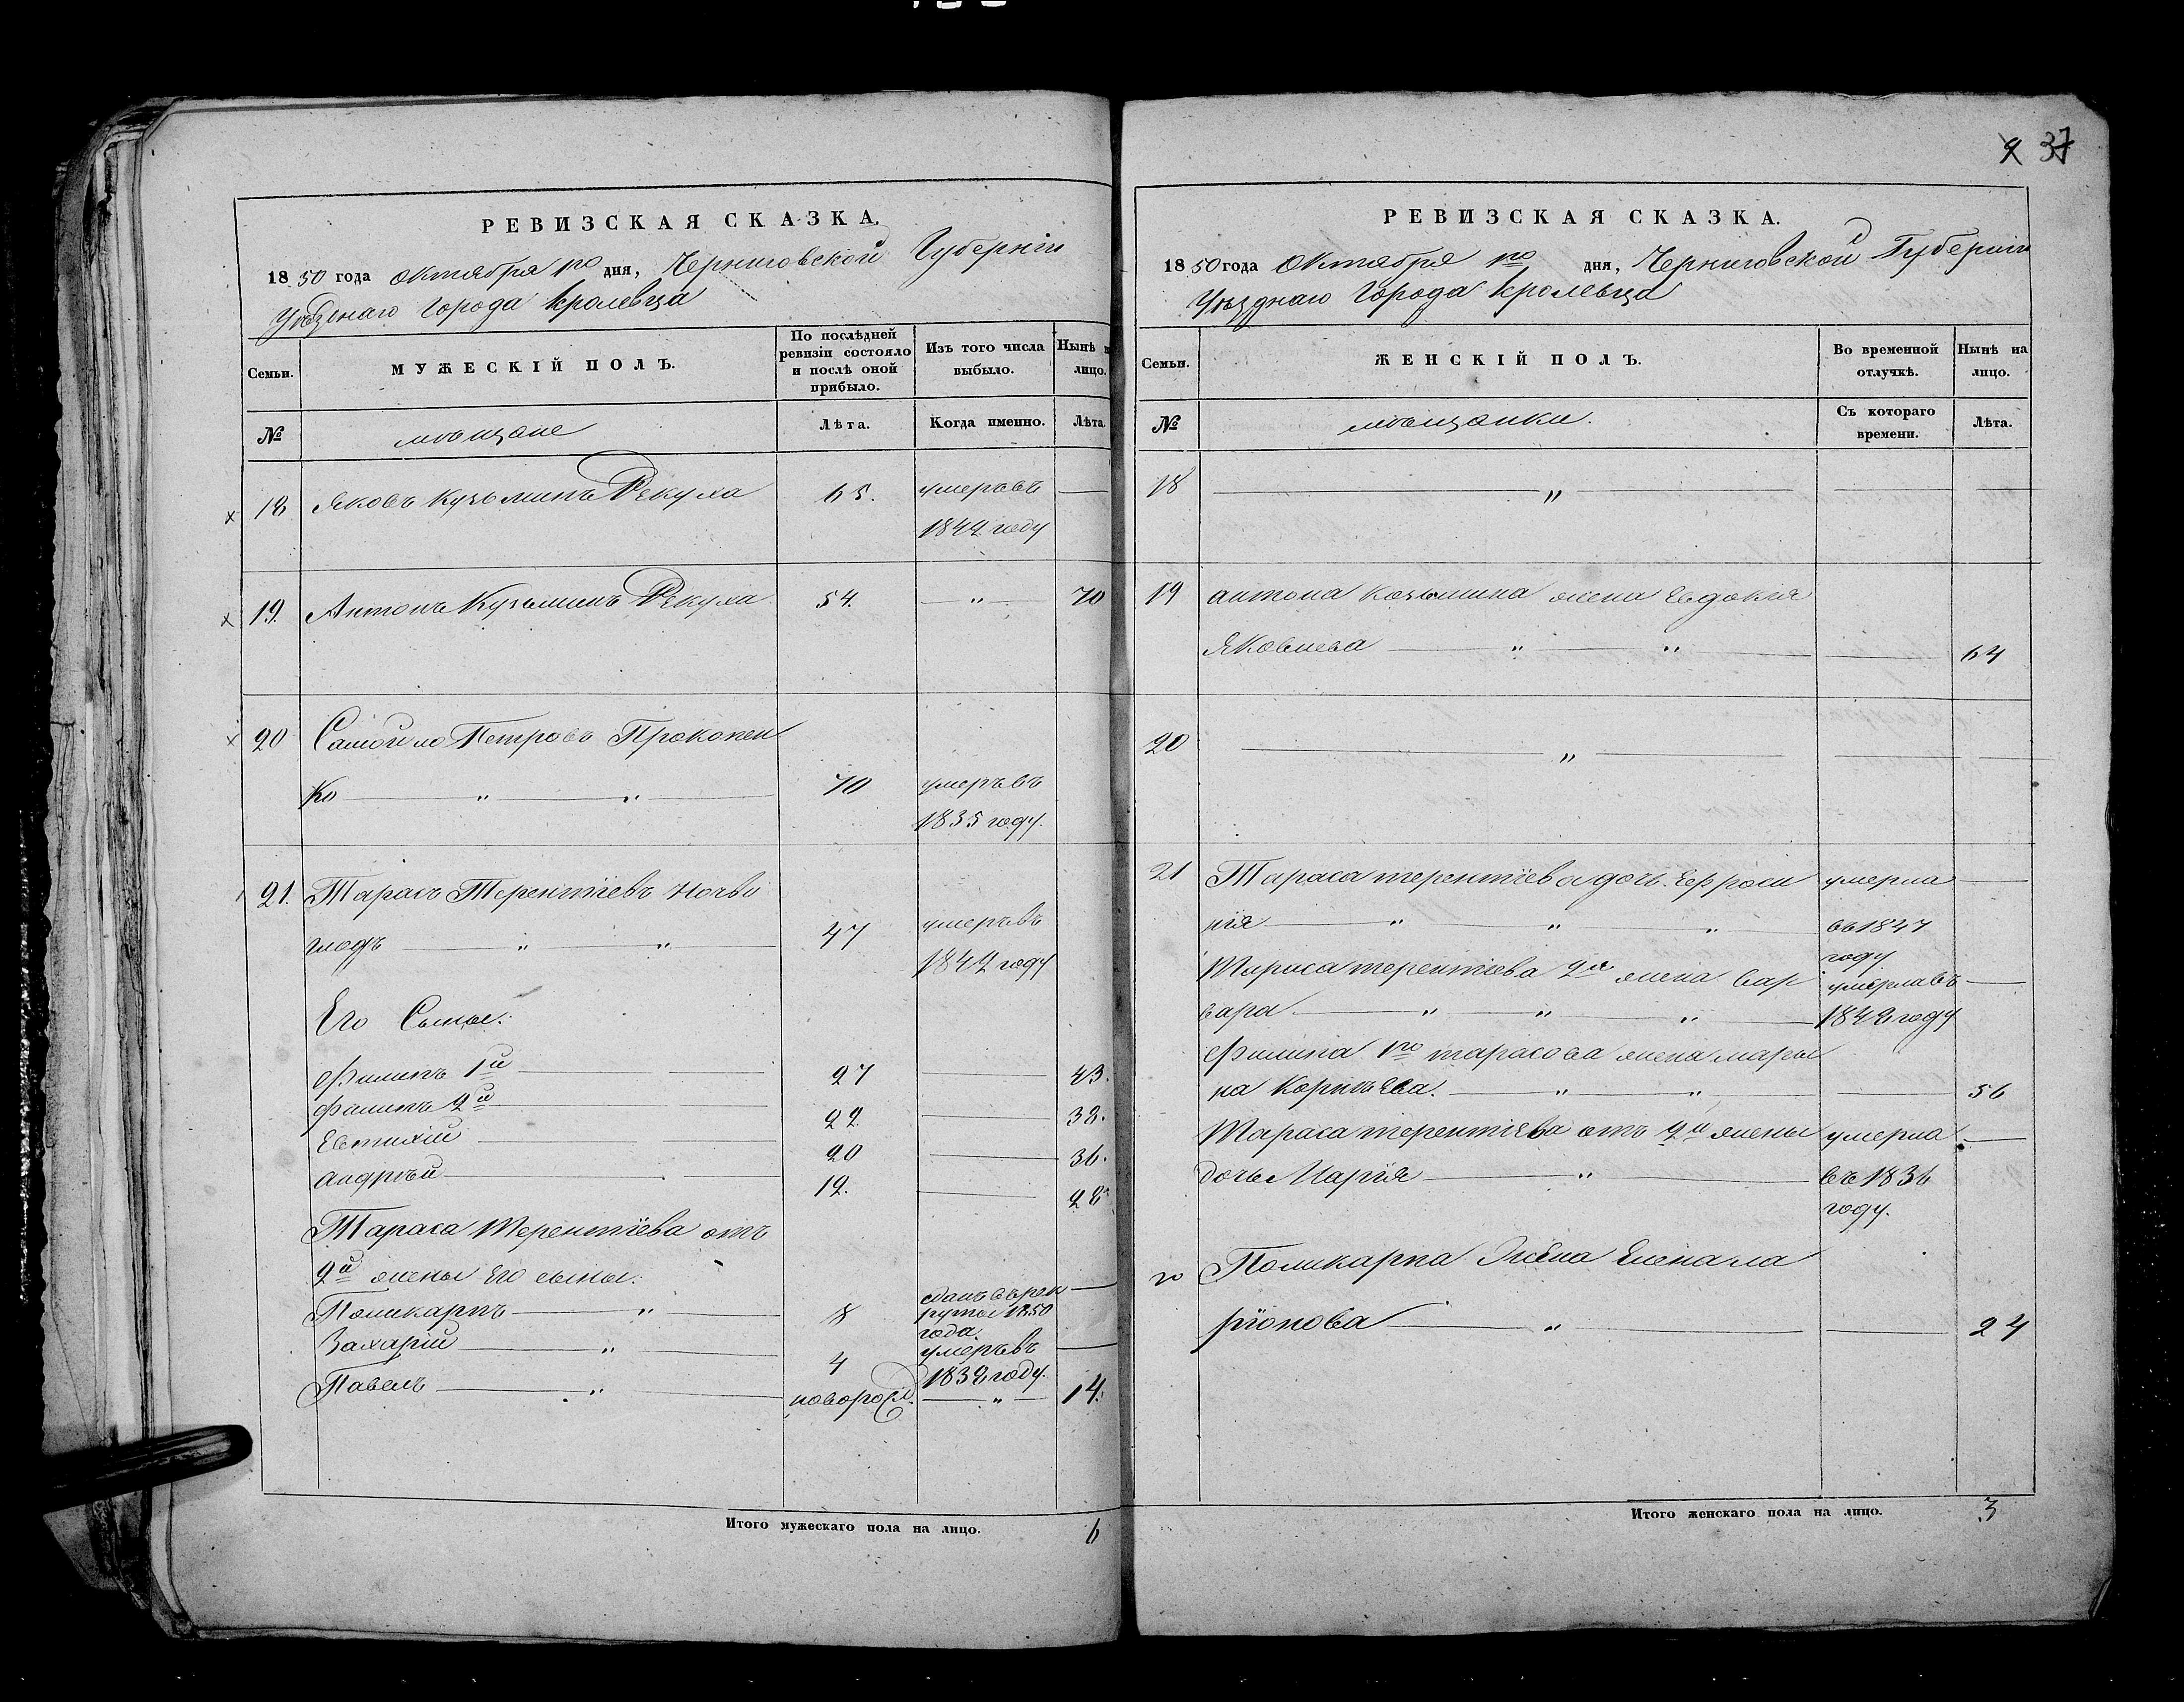 9 37
РЕВИЗСКАЯ СКАЗКА.
1850 года октября 1го дня, Черниговской Губерніи
Уѣзднаго города Кролевца
Семьи.
МУЖЕСКІЙ ПОЛЪ.
По послѣдней ревизіи состояло и послѣ оной прибыло.
Изъ того числа выбыло.
Нынѣ
лицо.
№
мѣщане
Лѣта.
Когда именно.
Лѣта.
18 Яковъ Кузьминъ Рекуха 65. умеръ въ —
1842 году
19. Антонъ Кузьминъ Рекуха 54. — " — 70
20 Самойло Петровъ Прокопен
ко — " — " — 70 умеръ въ
1835 году.
21. Тарасъ Терентіевъ Ночви
глодъ — " — " — 47 умеръ въ
1842 году
Его Сыны:
Филипъ 1й — 27 — 43.
Филипъ 2й — 22 — 38.
Евтихій — 20 — 36.
Андрѣй — 12. — 28.
Тараса Терентіева отъ
2й жены Его сыны:
Поликарпъ — " — 8 сданъ въ рек
руты 1850
года. —
Захарій — " — 4 умеръ въ
1838 году. —
Павелъ — " — новорожд. — " — 14.
Итого мужескаго пола на лицо. 6
РЕВИЗСКАЯ СКАЗКА.
1850 года Октября 1го дня, Черниговской Губерніи
Уѣзднаго города Кролевца
Семьи.
ЖЕНСКІЙ ПОЛЪ.
Во временной отлучкѣ.
Нынѣ на лицо.
№
мѣщанки.
Съ котораго времени.
Лѣта.
18 — " — — —
19 Антона Козьмина жена Евдокія
Яковлева — " — " — — 64
20 — " — — —
21 Тараса терентіева дочь Ефроси умерла —
нія — " — " — " — въ 1847
году
Тараса терентіева 2я жена Вар умерла въ —
вара — " — " — " — 1842 году
Филипа 1го тарасова жена Мары
на Корнѣева. — " — " — — 56
Тараса терентіева отъ 2й жены умерла —
дочь Марія — " — въ 1836
году.
Поликарпа Жена Елена ла
ріонова — " — — 24
Итого женскаго пола на лицо. 3